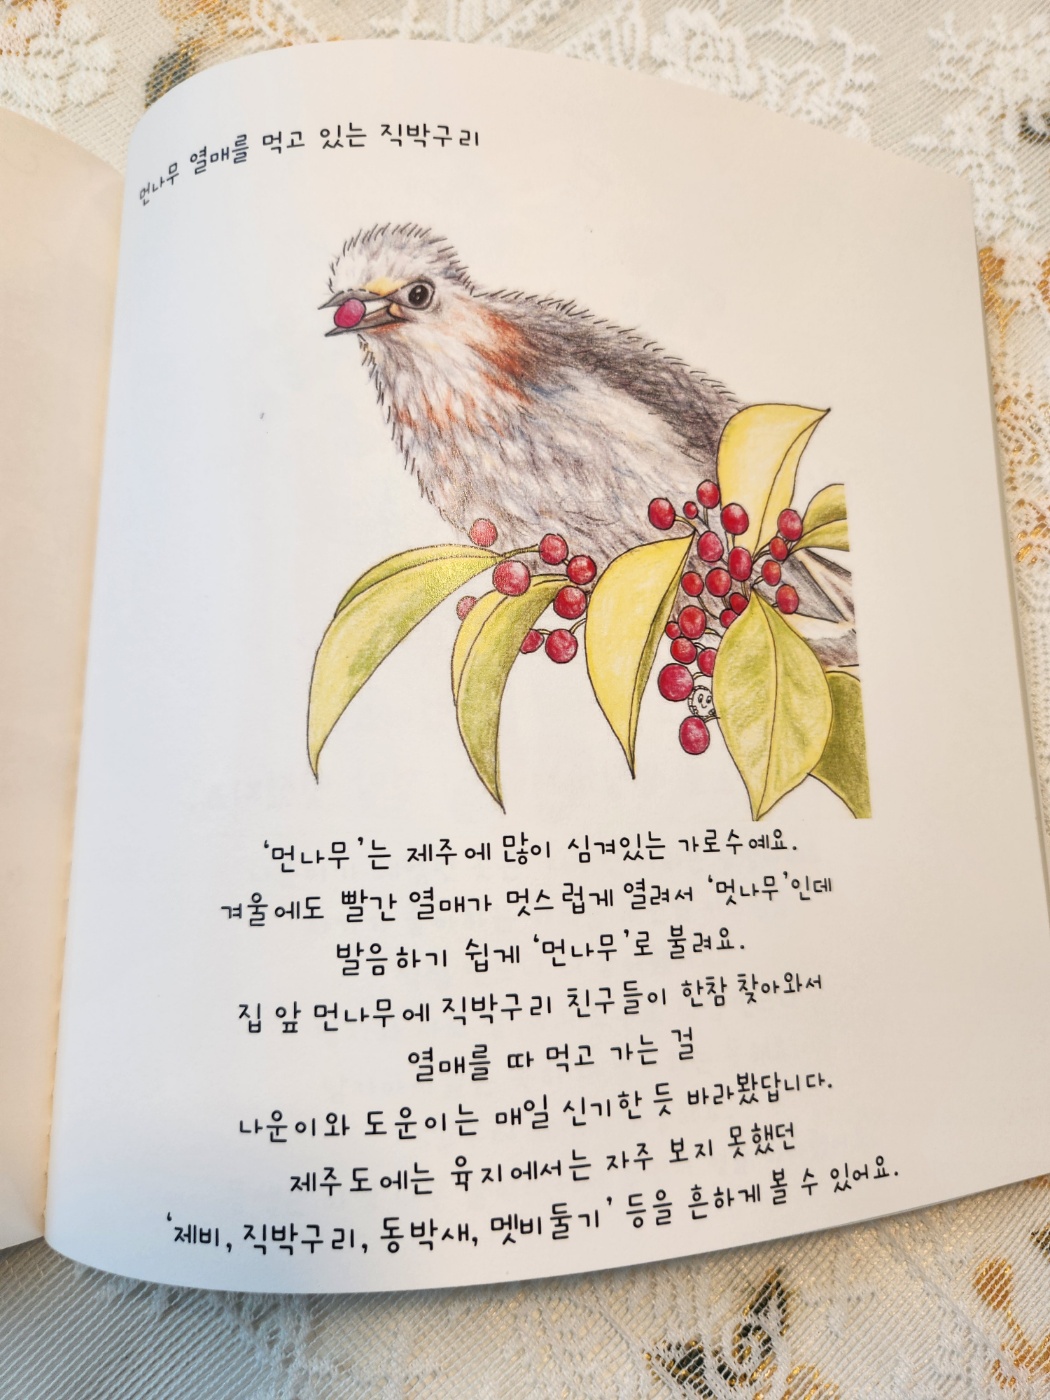 먼나무 열매를 먹고 있는 직박구리
‘먼나무’는 제주에 많이 심겨있는 가로수예요.
겨울에도 빨간 열매가 멋스럽게 열려서 ‘멋나무’인데
발음하기 쉽게 ‘먼나무’로 불려요.
집 앞 먼나무에 직박구리 친구들이 한참 찾아와서
열매를 따 먹고 가는 걸
나운이와 도운이는 매일 신기한 듯 바라봤답니다.
제주도에는 육지에서는 자주 보지 못했던
‘제비, 직박구리, 동박새, 멧비둘기’ 등을 흔하게 볼 수 있어요.